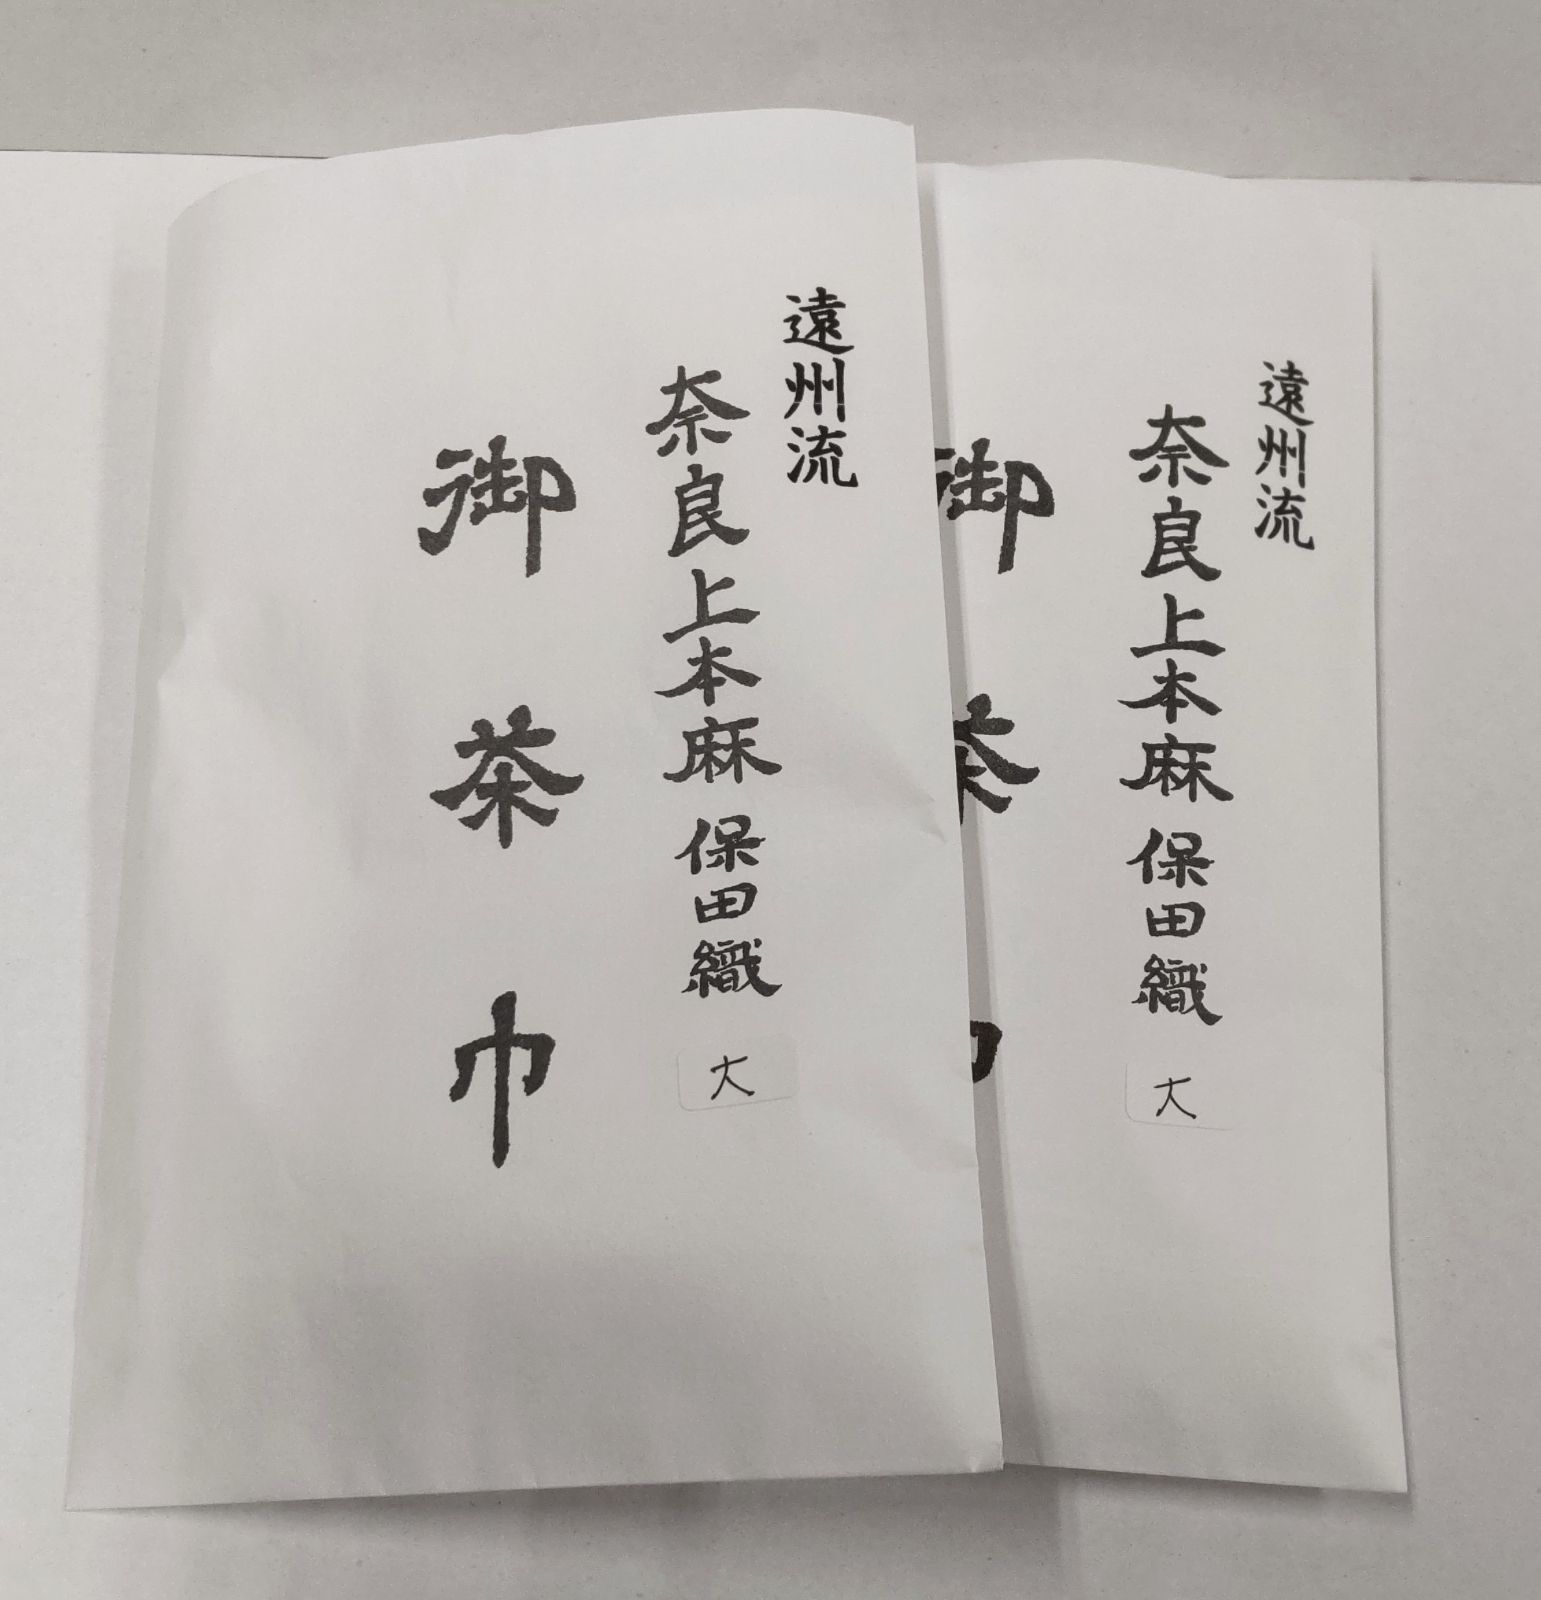 遠州流
奈良上本麻 保田織
大
御茶巾
遠州流
奈良上本麻 保田織
大
御茶